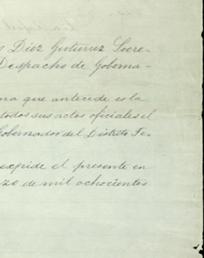 s Diez Gutierrez Secre-
Despacho de Goberna-
ma que antecede es la
todos sus actos oficiales el
Gobernador del Distrito Fe-
expide el presente en
zo de mil ochocientos